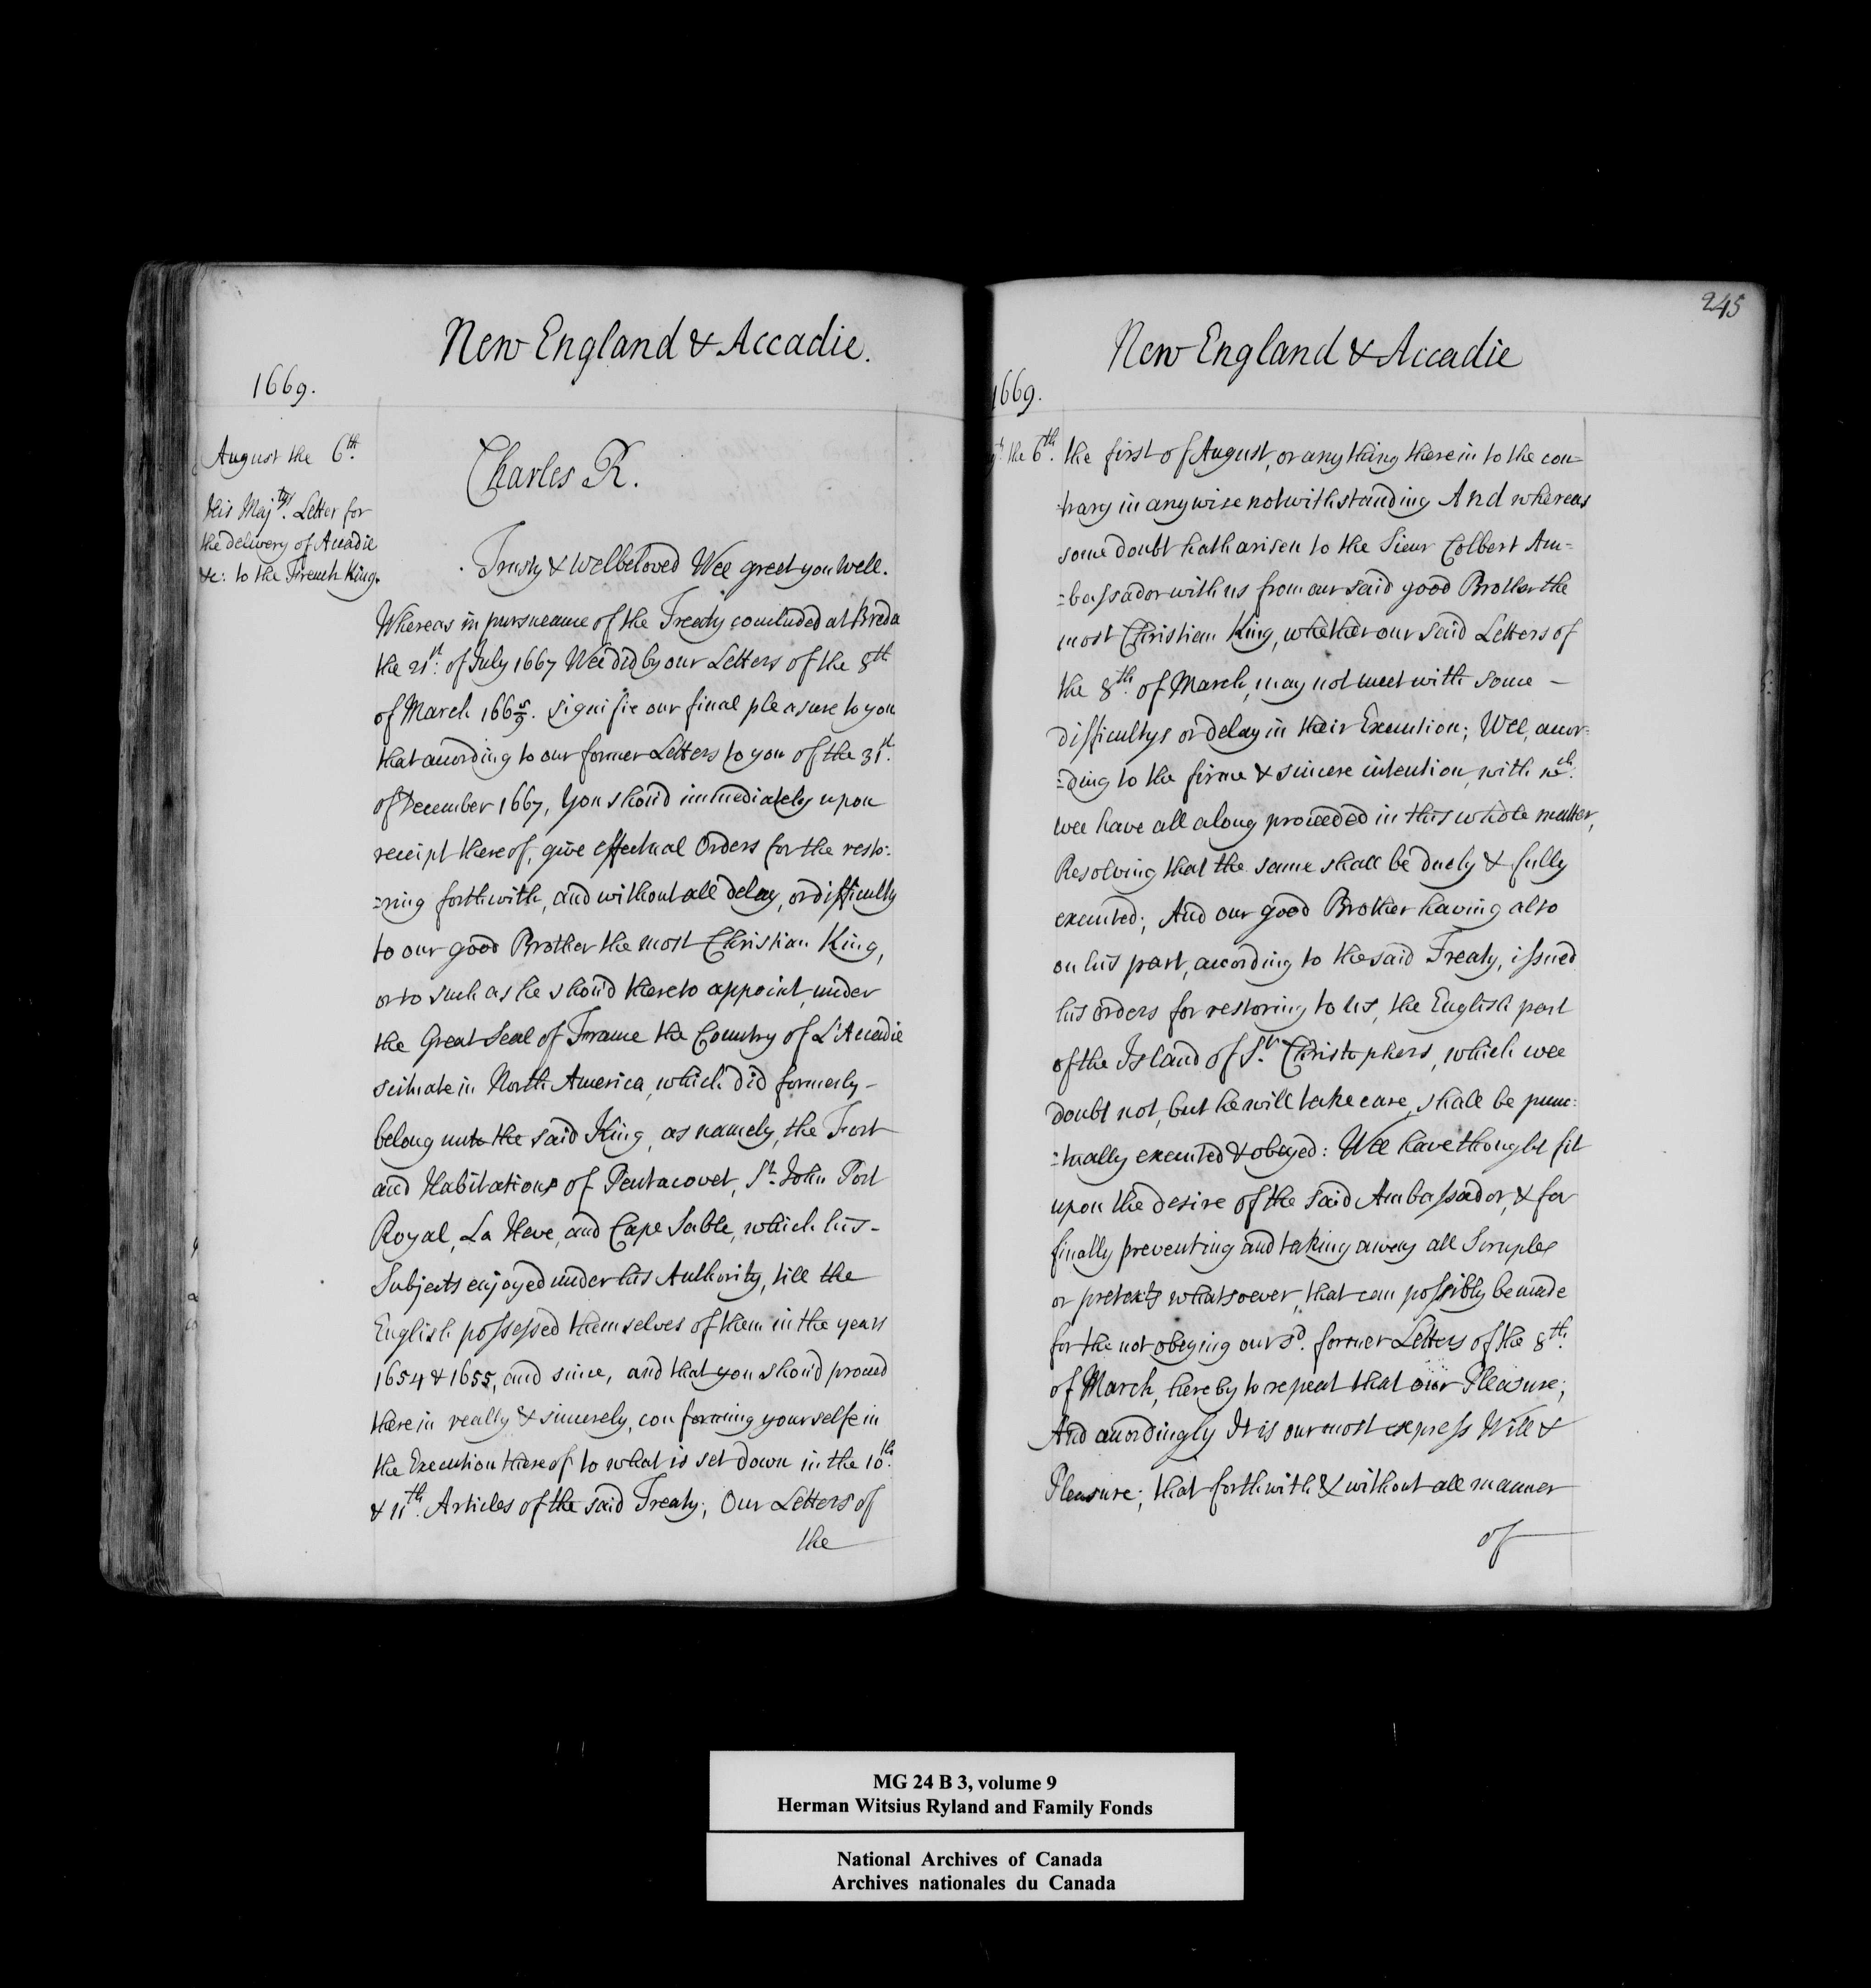 New England & Accadie.
1669.
August the 6th.
His Majtys. Letter for
the delivery of Accadie
&c: to the French King.
Charles R.
Trusty & welbeloved Wee greet you well.
Whereas in pursueance of the Treaty concluded at Breda
the 21st. of July 1667 Wee did by our Letters of the 8th
of March 1668/9. signifie our final pleasure to you
that according to our former Letters to you of the 31st.
of December 1667, You shou'd immediately upon
receipt thereof, give effectual Orders for the resto:
=ring forthwith, and without all delay, or difficulty
to our good Brother the most Christian King,
or to such as he shou'd thereto appoint, under
the Great Seal of France the Country of L'Accadie
scituate in North America, which did formerly -
belong unto the said King, as namely, the Fort
and Habitations of Pentacovet, St. John Port
Royal, La Heve, and Cape Sable, which his -
Subjects enjoyed under his Authority, till the
English possessed themselves of them in the years
1654 & 1655, and since, and that you shou'd proceed
therein really & sincerely, conforming yourselfe in
the Execution thereof to what is set down in the 10th.
& 11th. Articles of the said Treaty; Our Letters of
the
245
New England & Accadie
1669.
the 6th.
the first of August, or any thing therein to the con=
=trary in anywise notwithstanding And whereas
some doubt hath arisen to the Sieur Colbert Am=
=bassador with us from our said good Brother the
most Christian King, whether our said Letters of
the 8th. of March, may not meet with some -
difficultys or delay in their Execution; Wee, accor=
=ding to the firme & sincere intention, with wch.
wee have all along proceeded in this whole matter,
Resolving that the same shall be duely & fully
executed; And our good Brother having also
on his part, according to the said Treaty, issued
his orders for restoring to us, the English part
of the Island of St. Christophers, which wee
doubt not, but he will take care, shall be punc:
=tually executed & obeyed: Wee have thought fit
upon the desire of the said Ambassador, & for
finally preventing and taking away all Scruples
or pretexts whatsoever, that can possibly be made
for the not obeying our sd. former Letters of the 8th.
of March, hereby to repeat that our Pleasure;
And accordingly It is our most express Will &
Pleasure; that forthwith & without all manner
of
MG 24 B 3, volume 9
Herman Witsius Ryland and Family Fonds
National Archives of Canada
Archives nationales du Canada